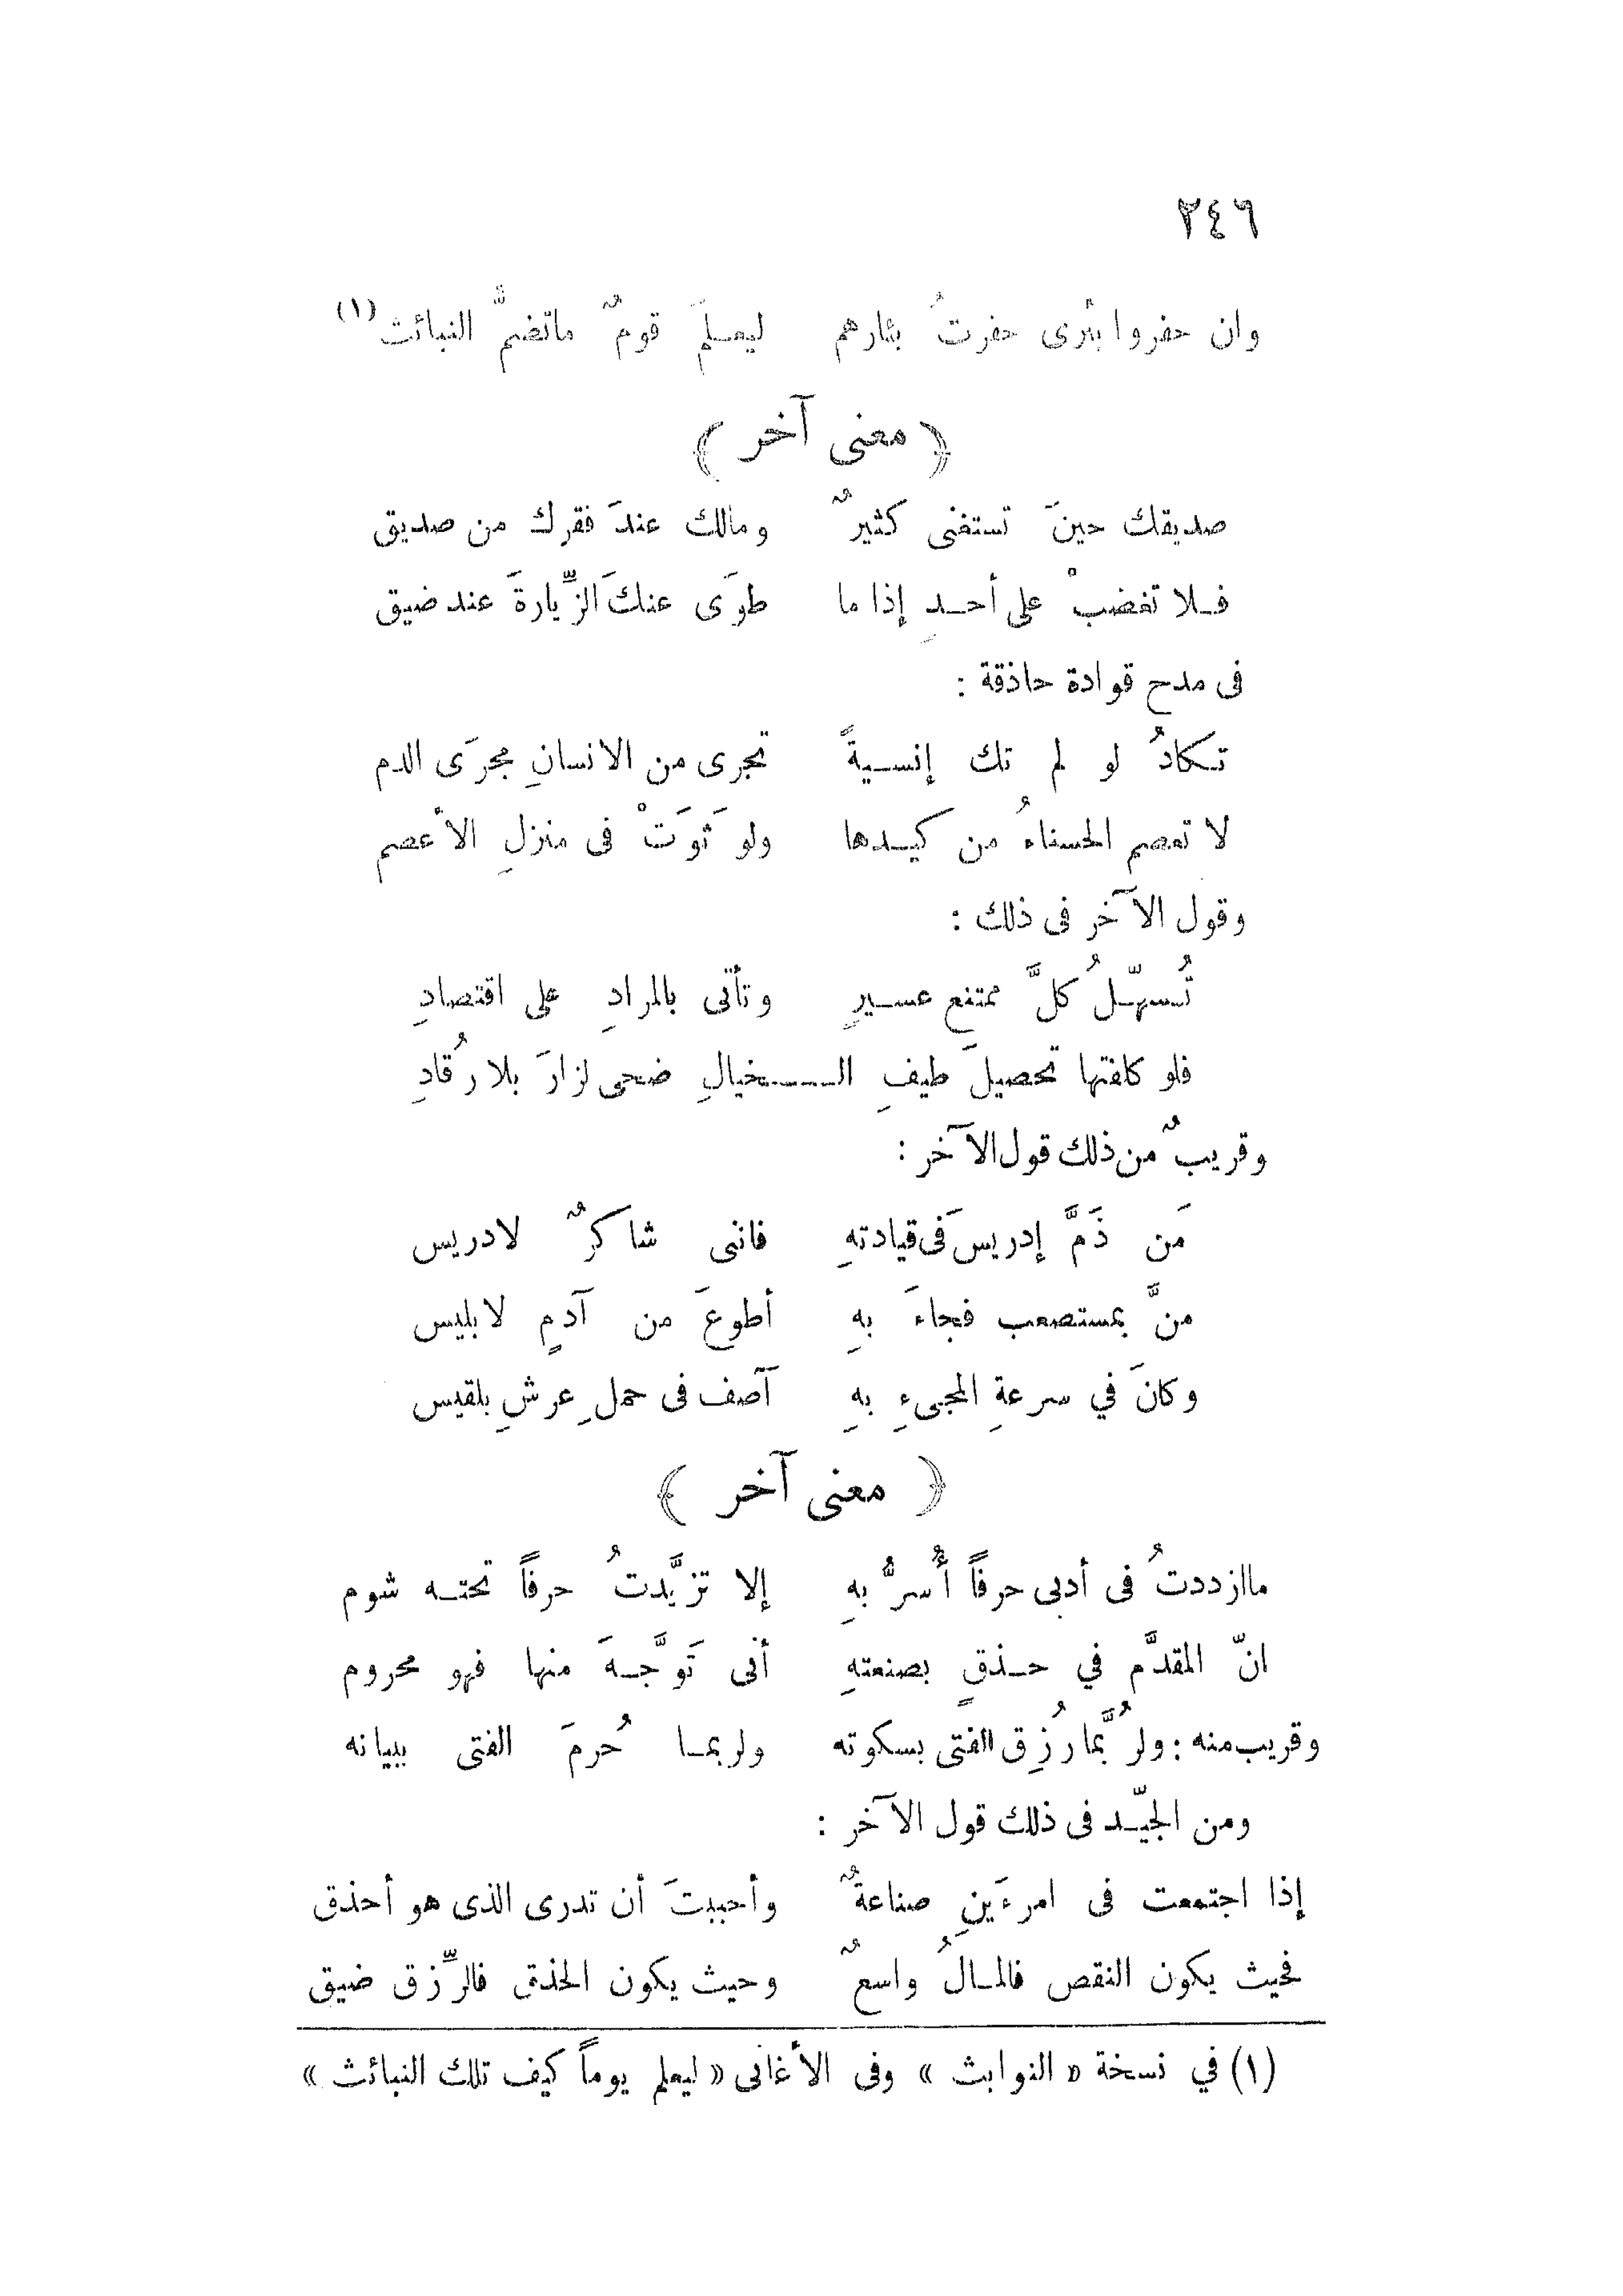 ٢٤٦
وان حفروا بئرى حفرتُ بئارهم ليعلمَ قومٌ ماتضمُّ النبائث (١)
﴿ معنى آخر ﴾
صديقك حينَ تستغنى كثيرٌ ومالك عندَ فقرك من صديق
فلا تغضبْ على أحدٍ إذا ما طوَى عنكَ الزِّيارةَ عند ضيق
فى مدح قوادة حاذقة :
تكادُ لو لم تك إنسيةً تجرى من الانسانِ مجرَى الدم
لا تعصم الحسناءُ من كيدها ولو ثوَتْ فى منزلِ الأعصم
وقول الآخر فى ذلك :
تُسهّلُ كلَّ ممتنع عسيرٍ وتأتى بالمرادِ على اقتصادِ
فلو كلفتها تحصيلَ طيفِ الـخيالِ ضحى لزارَ بلا رُقادِ
وقريبٌ من ذلك قول الآخر :
مَن ذَمَّ إدريسَ فى قيادتهِ فانى شاكرٌ لادريس
منَّ بمستصعب فجاءَ بهِ أطوعَ من آدمٍ لابليس
وكانَ في سرعةِ المجىءِ بهِ آصف فى حملِ عرشِ بلقيس
﴿ معنى آخر ﴾
ماازددتُ فى أدبى حرفاً أُسرُّ بهِ إلا تزيَّدتُ حرفاً تحته شوم
انّ المقدَّم في حذقٍ بصنعتهِ أنى تَوَجَّهَ منها فهو محروم
وقريب منه : ولرُبَّما رُزِق الفتى بسكوته ولربما حُرمَ الفتى ببيانه
ومن الجيّد فى ذلك قول الآخر :
إذا اجتمعت فى امرءَينِ صناعةٌ وأحببتَ أن تدرى الذى هو أحذق
فحيث يكون النقص فالمالُ واسعٌ وحيث يكون الحذق فالرِّزق ضيق
(١) في نسخة « النوابث » وفى الأغانى « ليعلم يوماً كيف تلك النبائث »